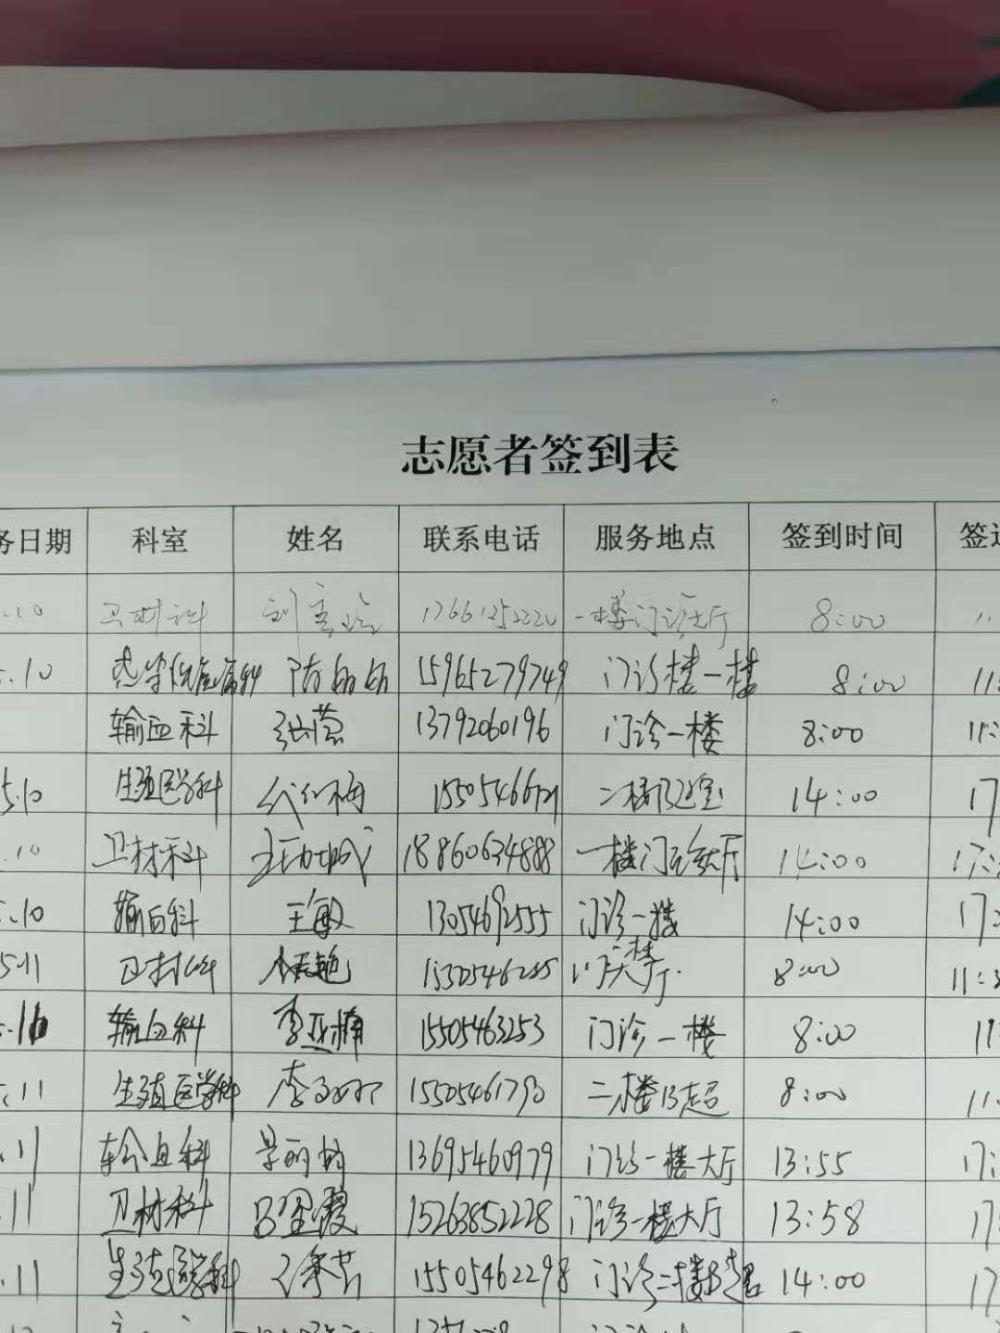 志愿者签到表
务日期 科室 姓名 联系电话 服务地点 签到时间 签
.10 卫材科 17661252220 一楼门诊大厅 8:00 11
5.10 陈 15965279749 门诊楼一楼 8:00 11
输血科 张营 13792060196 门诊一楼 8:00 11:
5.10 生殖医学科 代红梅 二楼B超室 14:00 17
.10 卫材科 18860634888 一楼门诊大厅 14:00 17:
5.10 输血科 王敏 13054692555 门诊一楼 14:00 17:
5.11 卫材科 门诊大厅 8:00 11:3
5.11 输血科 李亚楠 15505463253 门诊一楼 8:00 11
5.11 生殖医学科 李 15505461793 二楼B超 8:00 11
.11 输血科 13695460979 门诊一楼大厅 13:55 17:
.11 卫材科 吕金霞 15263852228 门诊一楼大厅 13:58 17
.11 生殖医学科 15505462298 门诊二楼B超 14:00 17